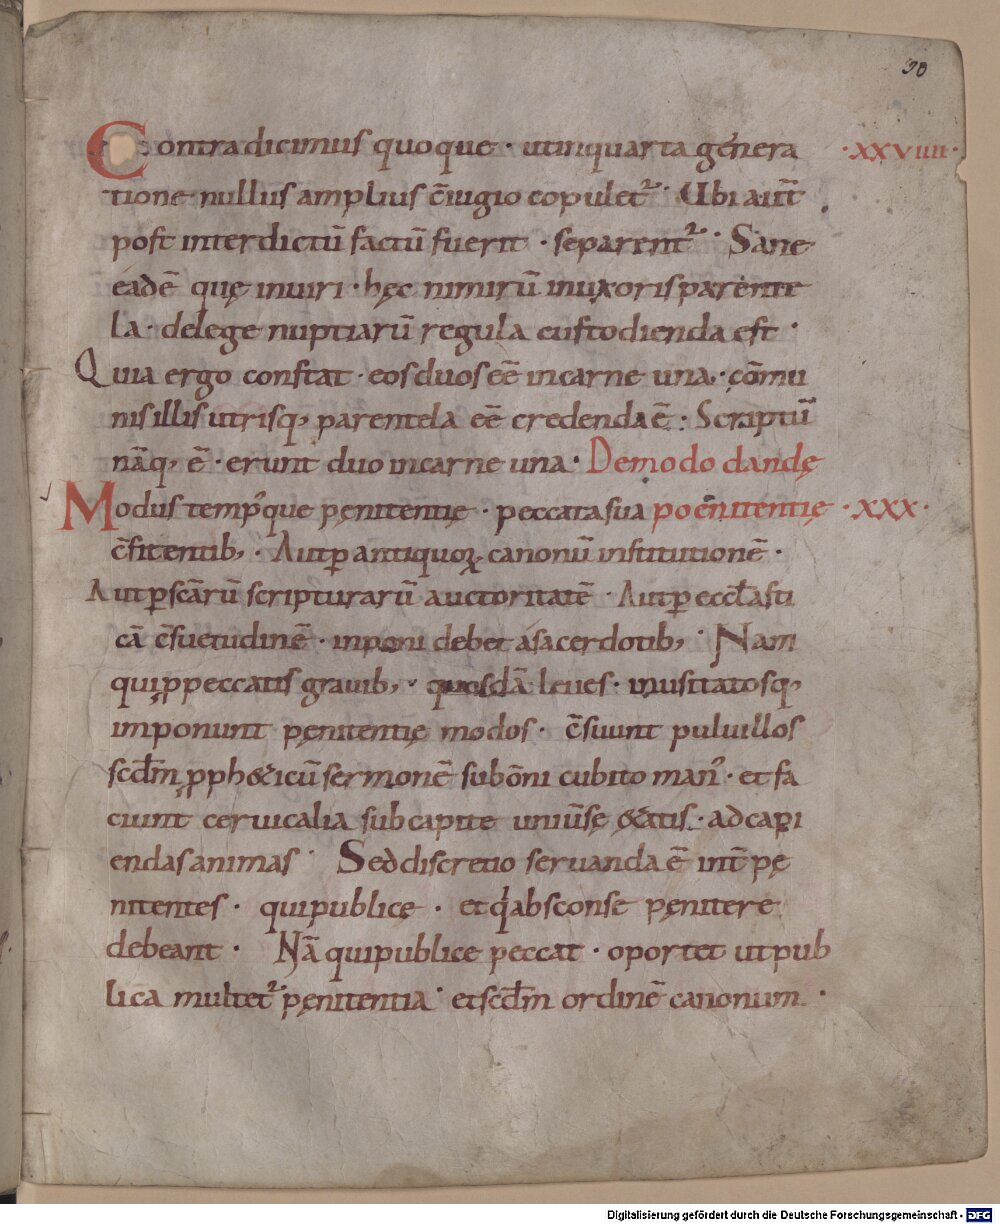 30
Contradicimus quoque · ut in quarta genera · XXVIIII ·
tione nullus amplius c̄iugio copulet᷑ · Ubi aut̄
post interdictū factū fuerit · separent᷑ · Sane
eadē quę in uiri · hęc nimirū in uxoris parente
la · de lege nuptiarū regula custodienda est ·
Quia ergo constat · eos duos eē in carne una · cōmu
nis illis utrisq, parentela eē credenda ē : Scriptū
nāq, ē · erunt duo in carne una · De modo dandę
Modus tempꝰque pęnitentię · peccata sua poenitentię · XXX ·
c̄fitentib, · Aut ꝑ antiquoꝝ canonū institutionē ·
Aut ꝑ scārū scripturarū auctoritatē · Aut ꝑ eccl̄asti
cā c̄suetudinē · inponi debet a sacerdotib, · Nam
qui ꝓ peccatis grauib, · quosdā leues · inusitatosq,
imponunt pęnitentię modos · c̄suunt puluillos
scd̄m ꝓph&icū sermonē sub ōni cubito manꝰ · et fa
ciunt ceruicalia sub capite uniūsę &atis · ad capi
endas animas · Sed discretio seruanda ē int̄ pę
nitentes · qui publicę · et q̇ absconse pęnitere
debeant · Nā qui publice peccat · oportet ut pub
lica multet᷑ pęnitentia · et scd̄m ordinē canonum ·
Digitalisierung gefördert durch die Deutsche Forschungsgemeinschaft - DFG